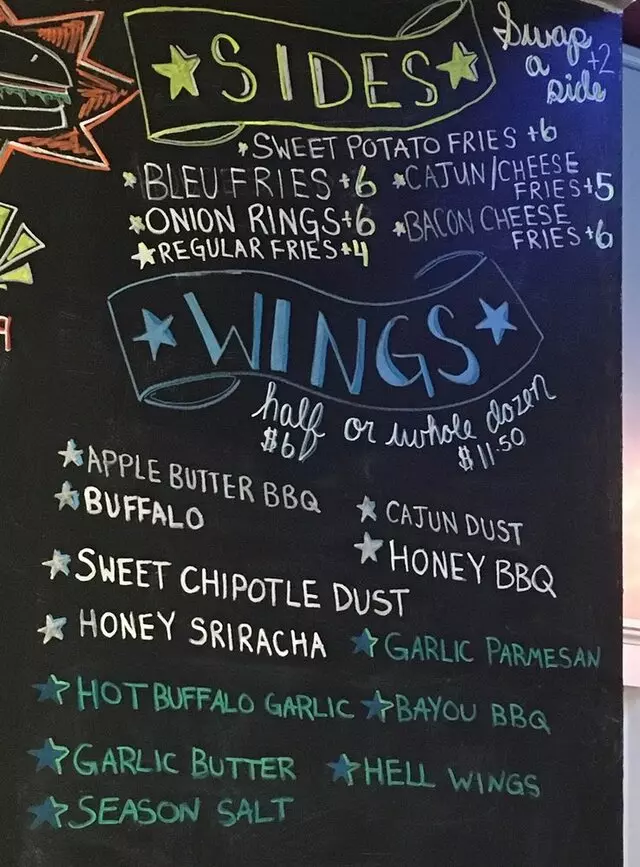 SIDES
Swap
a +2
side
SWEET POTATO FRIES +6
BLEU FRIES +6
CAJUN/CHEESE
FRIES +5
ONION RINGS +6
BACON CHEESE
FRIES +6
REGULAR FRIES +4
WINGS
half or whole dozen
$6 $11.50
APPLE BUTTER BBQ
BUFFALO
CAJUN DUST
HONEY BBQ
SWEET CHIPOTLE DUST
HONEY SRIRACHA
GARLIC PARMESAN
HOT BUFFALO GARLIC
BAYOU BBQ
GARLIC BUTTER
HELL WINGS
SEASON SALT